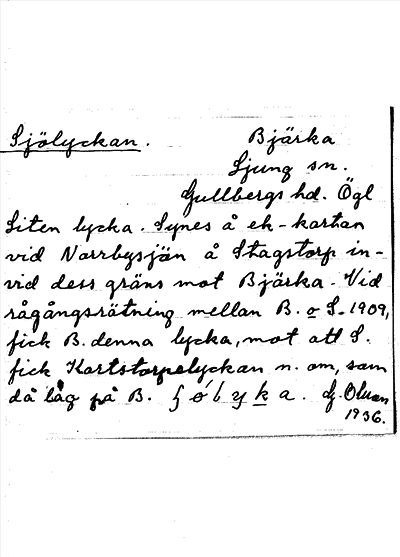 Sjölyckan. Bjärka
Ljung sn.
Gullbergs hd. Ögl
Liten lycka. Synes å ek-kartan
vid Norrbysjön å Stagstorp in-
vid dess gräns mot Bjärka. Vid
rågångsrätning mellan B. o S. 1909,
fick B. denna lycka, mot att S.
fick Kortstorpelyckan n. om, som
då låg på B.
1936.